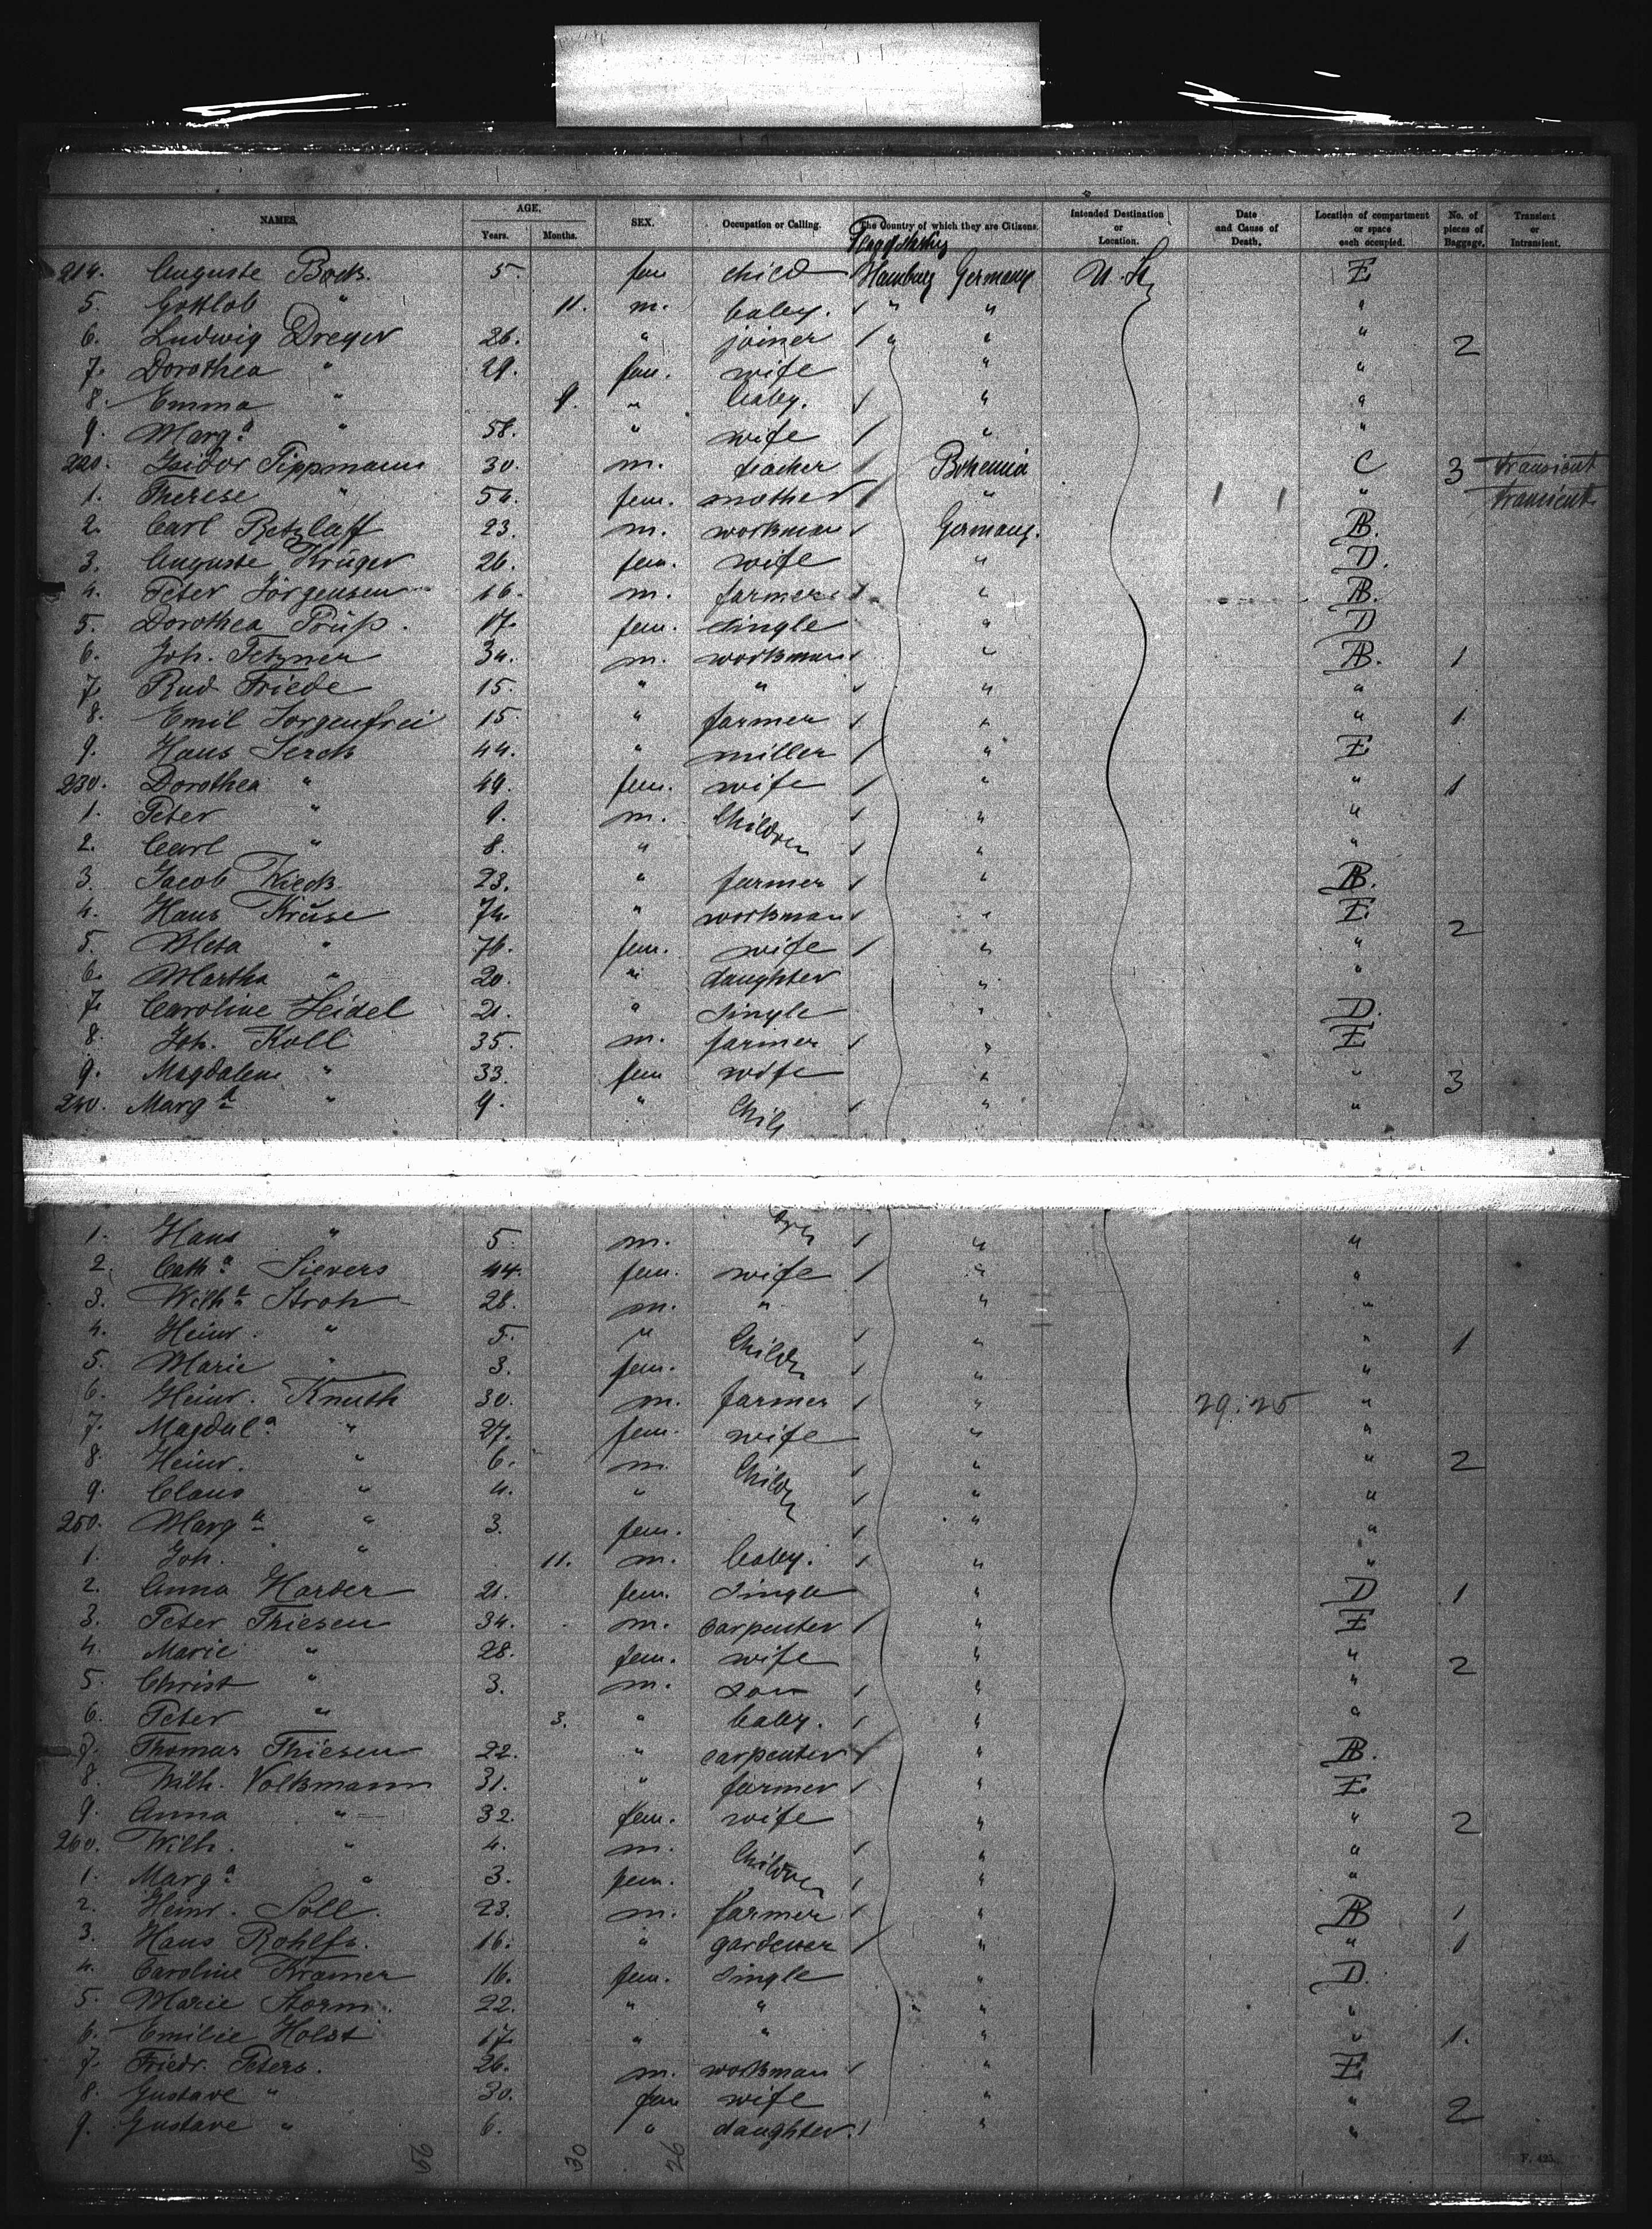 NAMES. AGE. Years. Months. SEX. Occupation or Calling. The Country of which they are Citizens. Intended Destination or Location. Date and Cause of Death. Location of compartment or space each occupied. No. of pieces of Baggage. Transient or Intransient.
214. Auguste Bock 5 fem child Hamburg Germany U. St. E
5. Gottlob " 11. m. baby. " " "
6. Ludwig Dreyer 26. " joiner " " " 2
7. Dorothea " 29. fem. wife " "
8. Emma " 9. " baby. " "
9. Marg.a " 58. " wife " "
220. Isidor Tippmann 30. m. teacher Bohemia C 3 transient
1. Therese " 54. fem. mother " " transient
2. Carl Retzlaff 23. m. workman Germany. AB.
3. Auguste Krüger 26. fem. wife " D.
4. Peter Jörgensen 16. m. farmer " AB.
5. Dorothea Prüß. 17. fem. single " D
6. Joh. Tetzner 34. m. workman " AB. 1
7. Rud. Friede 15. " " " "
8. Emil Sorgenfrei 15. " farmer " " 1.
9. Hans Serck 44. " miller " E
230. Dorothea " 49. fem. wife " " 1
1. Peter " 9. m. Children " "
2. Carl " 8. " " "
3. Jacob Wieck 23. " farmer " AB.
4. Hans Krŭse 74. " workman " E 2
5. Meta " 76. fem. wife " "
6. Martha " 20. " daughter " "
7. Caroline Seidel 21. " single " D.
8. Joh. Koll 35. m. farmer " E
9. Magdalena " 33. fem wife " " 3
240. Marg.a " 9. " Chil " "
1. Hans " 5. m. dren " "
2. Cath.a Sievers 44. fem. wife " "
3. Wilh.e Stroh 28. m. " " "
4. Heinr. " 5. " Childr " " 1
5. Marie " 3. fem. " "
6. Heinr. Knuth 30. m. farmer " 29.25 "
7. Magdal.a " 27. fem. wife " "
8. Heinr. " 6. m. Childr " " 2
9. Claus " 4. " " "
250. Marg.a " 3. fem. " "
1. Joh. " 11. m. baby. " "
2. Anna Harder 21. fem. Single " D 1
3. Peter Thiesen 34. m. carpenter " E
4. Marie " 28. fem. wife " " 2
5. Christ " 3. m. son " "
6. Peter " 3. " baby. " "
7. Thomas Thiesen 22. " carpenter " AB.
8. Wilh. Volkmann 31. " farmer " E
9. Anna " 32. fem. wife " " 2
260. Wilh. " 4. m. Children " "
1. Marg.a " 3. fem. " "
2. Heinr. Soll. 23. m. farmer " AB 1
3. Hans Rohlfs. 16. " gardener " " 1
4. Caroline Kramer 16. fem. single " D.
5. Marie Storm. 22. " " " "
6. Emilie Holst 17. " " " " 1.
7. Friedr. Peters. 26. m. workman " E
8. Gustave " 30. fem wife " " 2
9. Gustave " 6. " daughter. " "
56 30 26